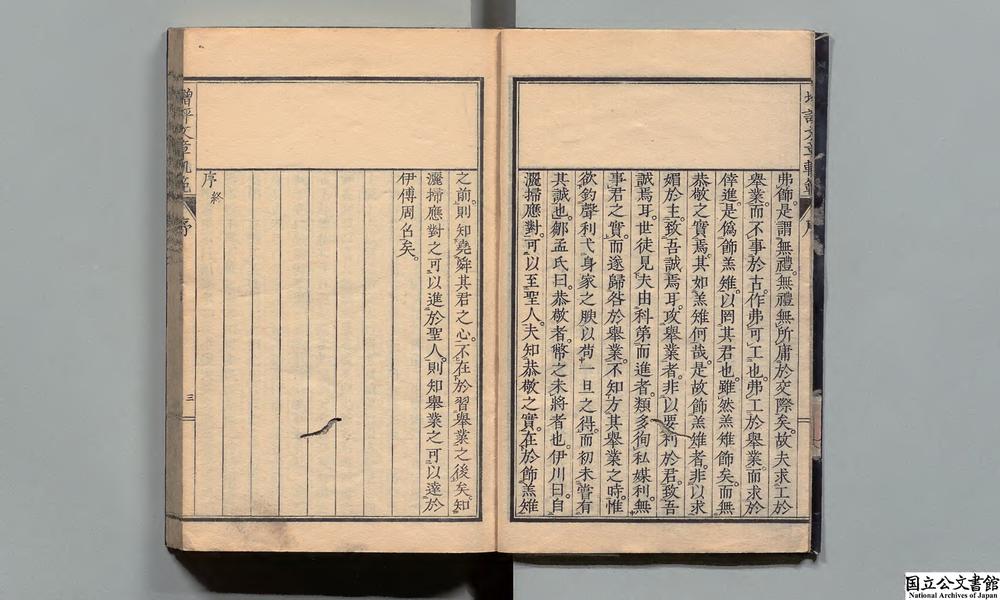 弗飾是謂無禮無禮無所庸於交際矣故夫求工於
舉業而不事於古作弗可工也弗工於舉業而求於
倖進是僞飾羔雉以罔其君也雖然羔雉飾矣而無
恭敬之實焉其如羔雉何哉是故飾羔雉者非以求
媚於主致吾誠焉耳攻舉業者非以要利於君致吾
誠焉耳世徒見夫由科第而進者類多徇私媒利無
事君之實而遂歸咎於舉業不知方其舉業之時惟
欲釣聲利弋身家之腴以苟一旦之得而初未嘗有
其誠也鄒孟氏曰恭敬者幣之未將者也伊川曰自
灑掃應對可以至聖人夫知恭敬之實在於飾羔雉
之前則知堯舜其君之心不在於習舉業之後矣知
灑掃應對之可以進於聖人則知舉業之可以達於
伊傅周召矣
序終
增評文章軌範
序
三
国立公文書館
National Archives of Japan